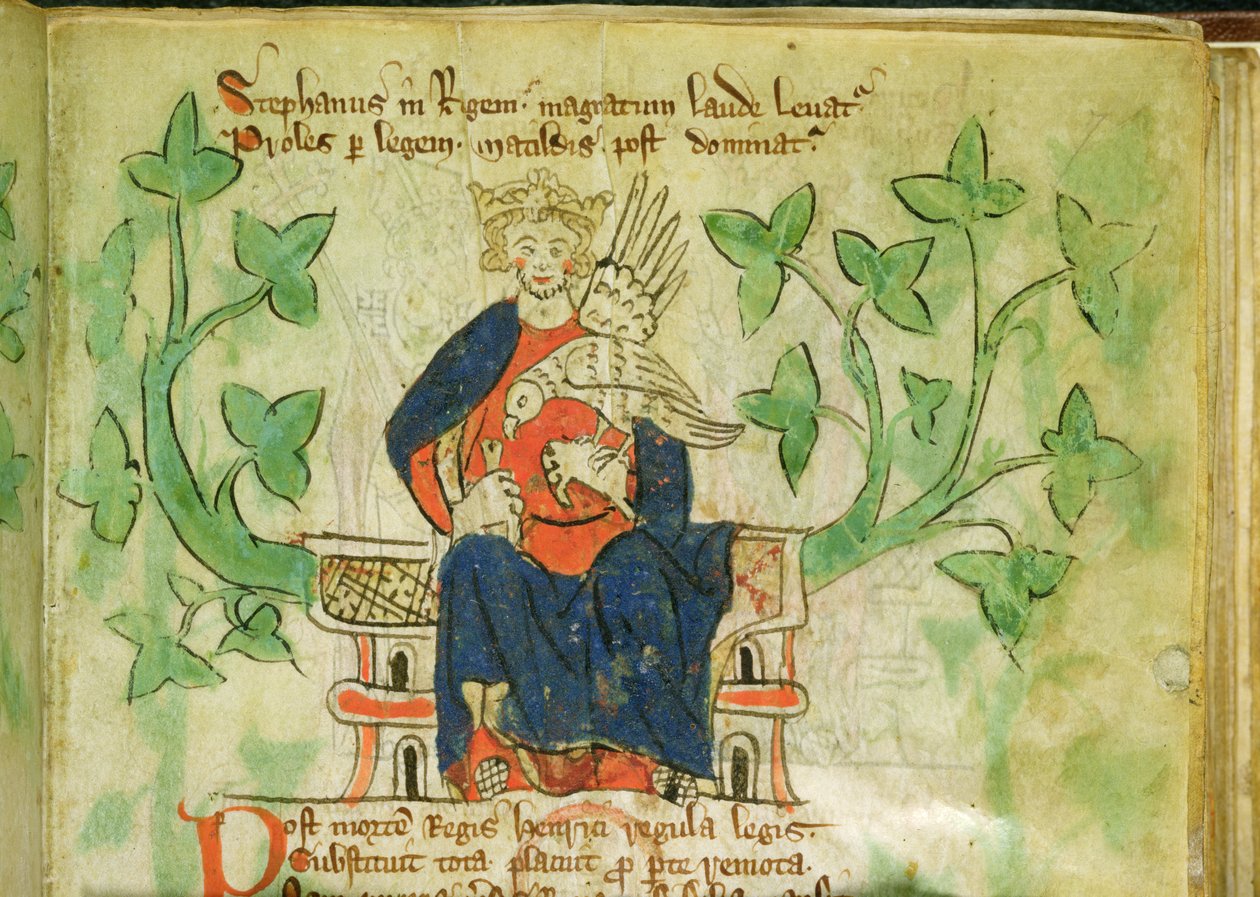 Stephanus in Regem. magnatum laude levat᷑
Proles p̱ legem. Matildis. post dominat᷑
Post mortē Regis Henrici regula legis.
Substituit tota. placuit ꝓ p̱te remota.